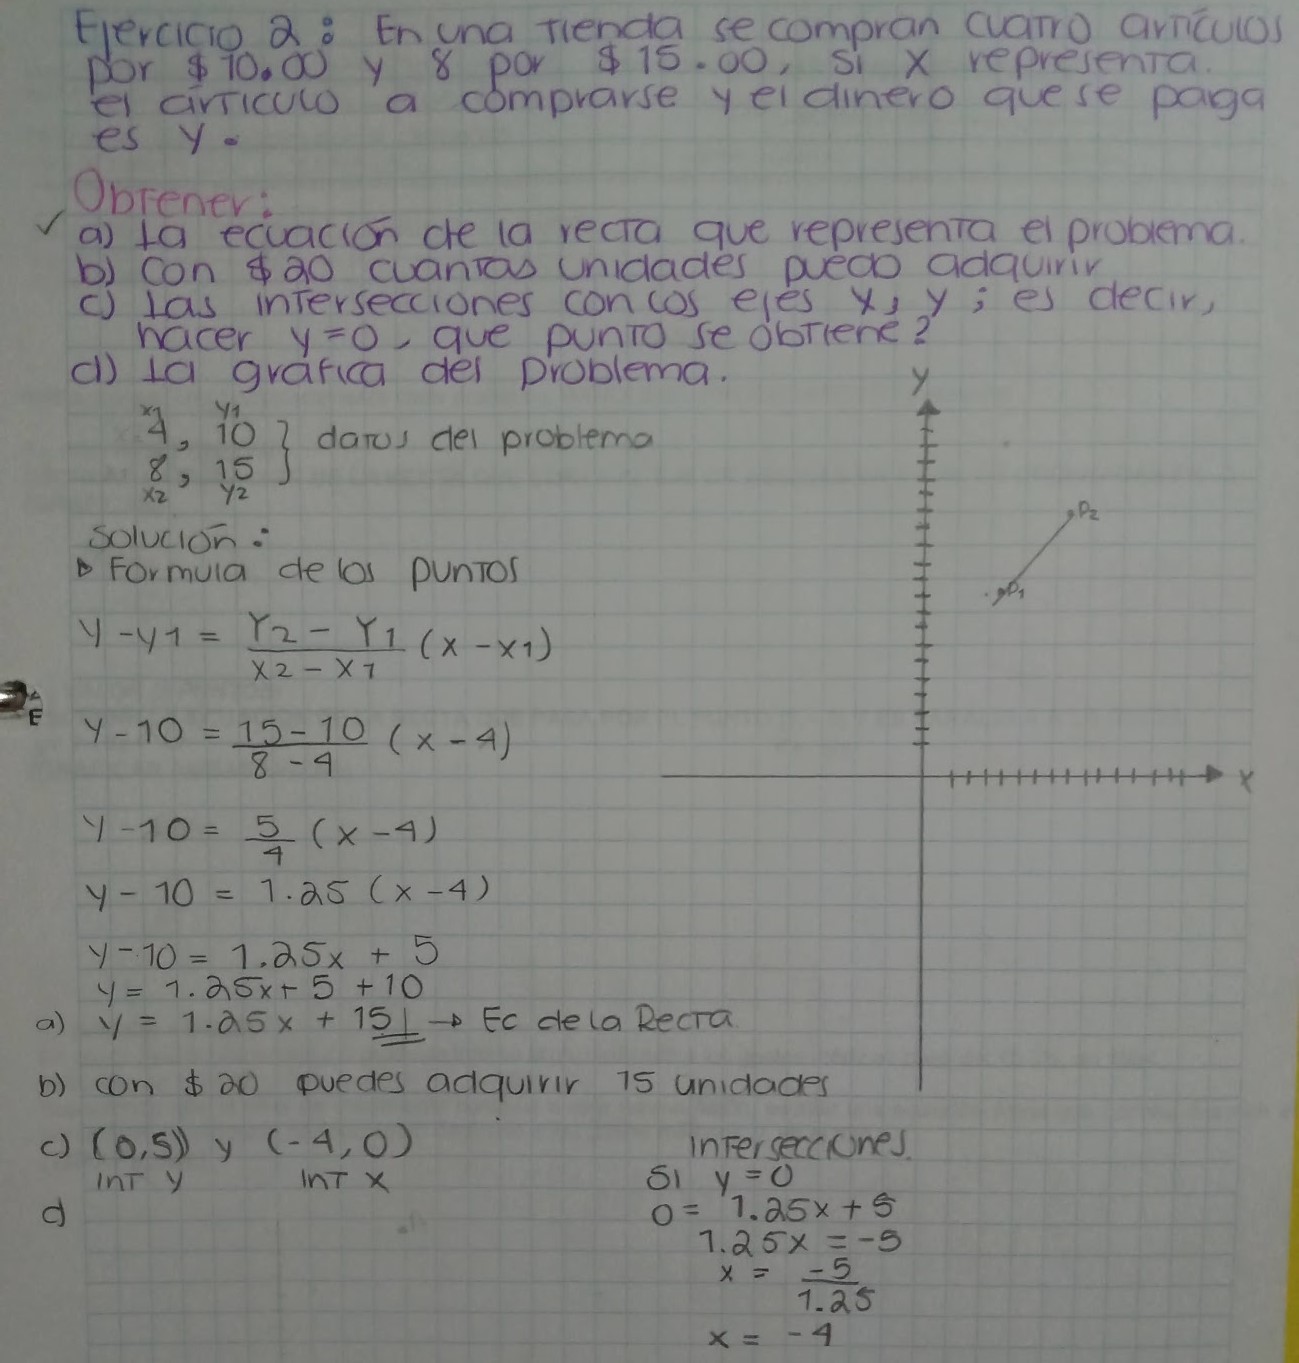 Ejercicio 2: En una Tienda se compran cuatro artículos
por $10.00 y 8 por $15.00, si x representa.
el árticulo a comprarse y el dinero que se paga
es y.
Obtener:
✓
a) La ecuación de la recta que representa el problema.
b) Con $20 cuantas unidades puedo adquirir
c) Las intersecciones con los ejes x, y; es decir,
hacer y=0, que punto se obtiene?
d) La gráfica del problema.
x1 y1
4, 10 } datos del problema
8, 15
x2 y2
Solución:
▷ Formula de los puntos
y - y1 = Y2 - Y1 / x2 - x1 (x - x1)
y - 10 = 15 - 10 / 8 - 4 (x - 4)
y - 10 = 5/4 (x - 4)
y - 10 = 1.25 (x - 4)
y - 10 = 1.25x + 5
y = 1.25x + 5 + 10
a) y = 1.25x + 15 → Ec de la Recta
b) con $20 puedes adquirir 15 unidades
c) (0,5) y (-4,0)
int y int x
d
Y
P2
P1
X
Intersecciones.
Si y = 0
0 = 1.25x + 5
1.25x = -5
x = -5 / 1.25
x = -4